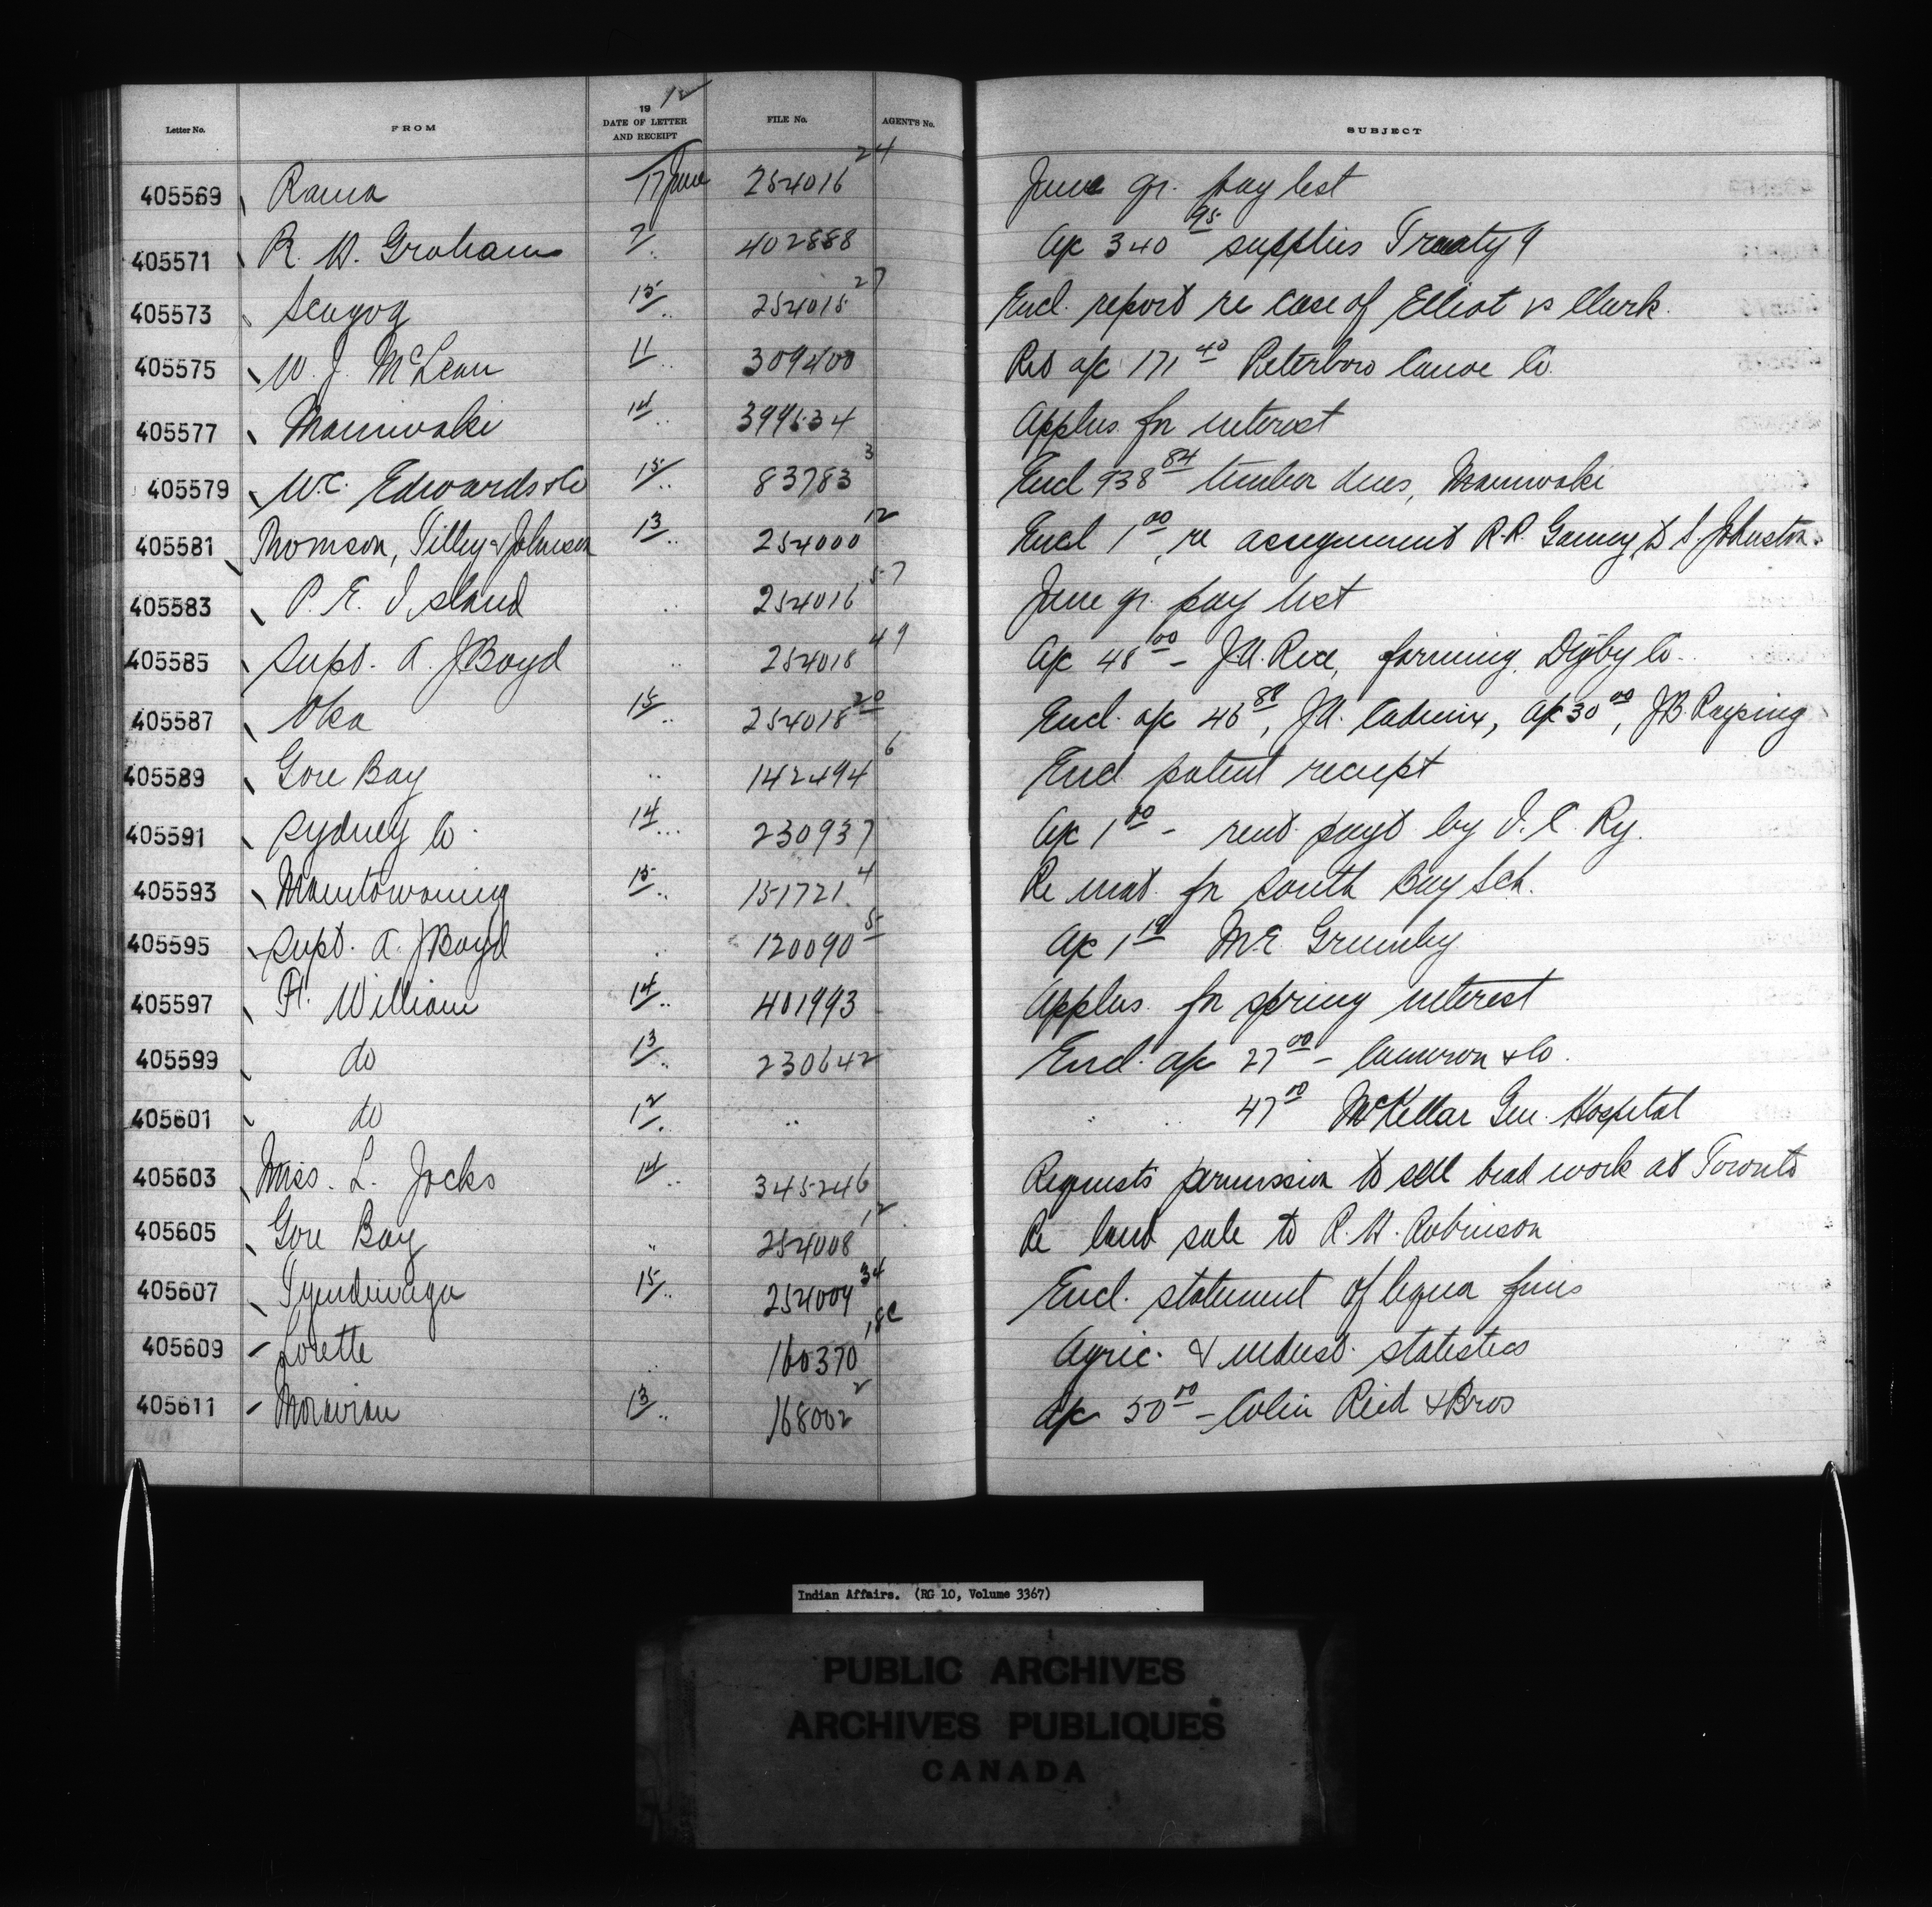 Letter No. FROM 19 12 DATE OF LETTER AND RECEIPT FILE No. AGENT'S No. SUBJECT
405569 Rama 17 June 254016 24 June qr. pay list
405571 R. W. Graham 7 402888 a/c 340 95 supplies Treaty 9
405573 Scugog 15 254015 27 Encl. report re case of Elliot vs Clark.
405575 W. J. McLean 11 309400 Ret a/c 171 40 Peterboro Canoe Co.
405577 Maniwaki 14 399634 Applus. for interest
405579 W.C. Edwards & Co 15 83783 3 Encl 938 84 timber dues, Maniwaki
405581 Thomson, Tilley & Johnson 13 254000 12 Encl 1 00, re assignment R.R. Gamey to S. Johnston.
405583 P. E. Island .. 254016 57 June qr. pay list
405585 Supt. A. J Boyd .. 254018 49 a/c 48 00 - J.A. Rice, farming, Digby Co.
405587 Oka 15 254018 20 Encl. a/c 46 89, J.A. a/c 30 00, J.B.
405589 Gore Bay .. 142494 6 Encl. patent receipt
405591 Sydney Co. 14 230937 a/c 1 00 - rent payt by I. C. Ry.
405593 Manitowaning 15 151721. 4 Re mat. for South Bay Sch.
405595 Supt. A. J Boyd . 120090 5 a/c 1 10 M.E.
405597 Ft. William 14 401993 Applus. for spring interest
405599 do 13 230642 Encl. a/c 27 00 - Cameron & Co.
405601 do 12 .. .. .. 47 00 McKellar Gen. Hospital
405603 Miss. L. Jocks 14 345246 Requests permission to sell bead work at Toronto
405605 Gore Bay .. 254008 12 Re land sale to R. H. Robinson
405607 Tyendinaga 15 254009 34 Encl. statement of liquor fines
405609 Lorette .. 160370 18c Agric. & indust. statistics
405611 Moravian 13 168002 2 a/c 50 00 - Colin Reid & Bros
Indian Affairs. (RG 10, Volume 3367)
PUBLIC ARCHIVES
ARCHIVES PUBLIQUES
CANADA